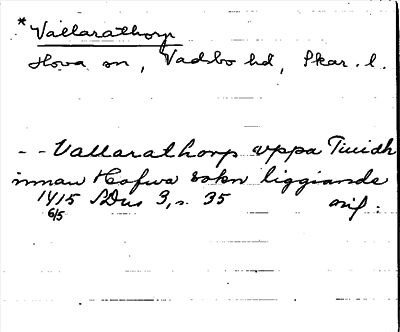 * Vallarathorp
Hova sn, Vadsbo hd, Skar. l.
-- Vallarathorp vppa Tiuidh
innan Hofwa sokn liggiande
1415 SDns 3, s. 35 orig.
6/5